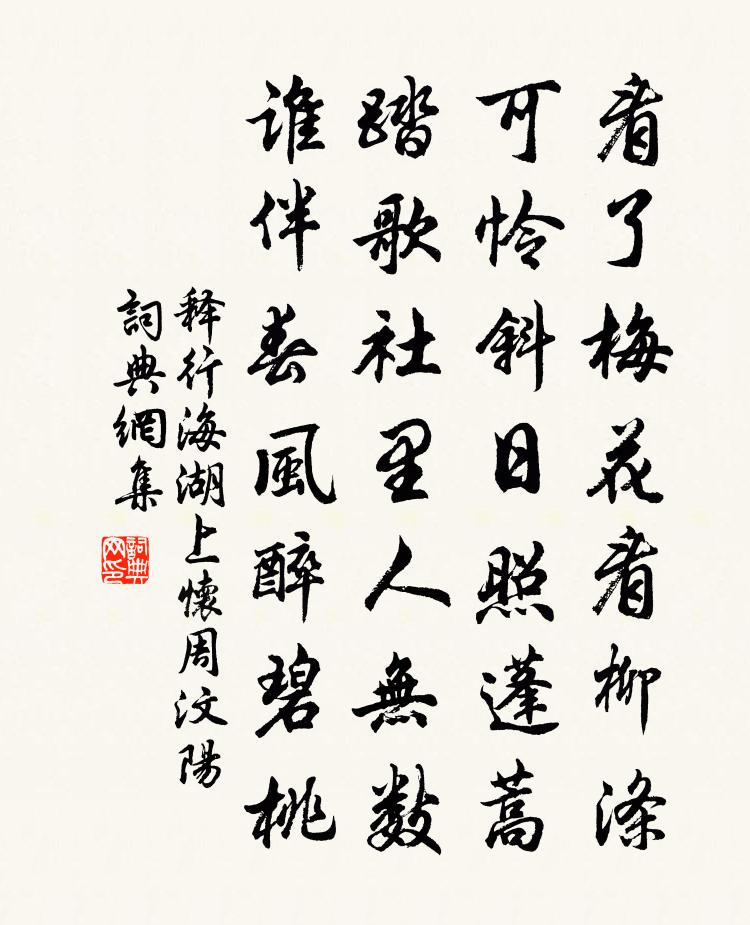 看了梅花看柳涤
可怜斜日照蓬蒿
踏歌社里人無数
谁伴春風醉碧桃
释行海湖上懷周汶陽
詞典網集
詞典网印